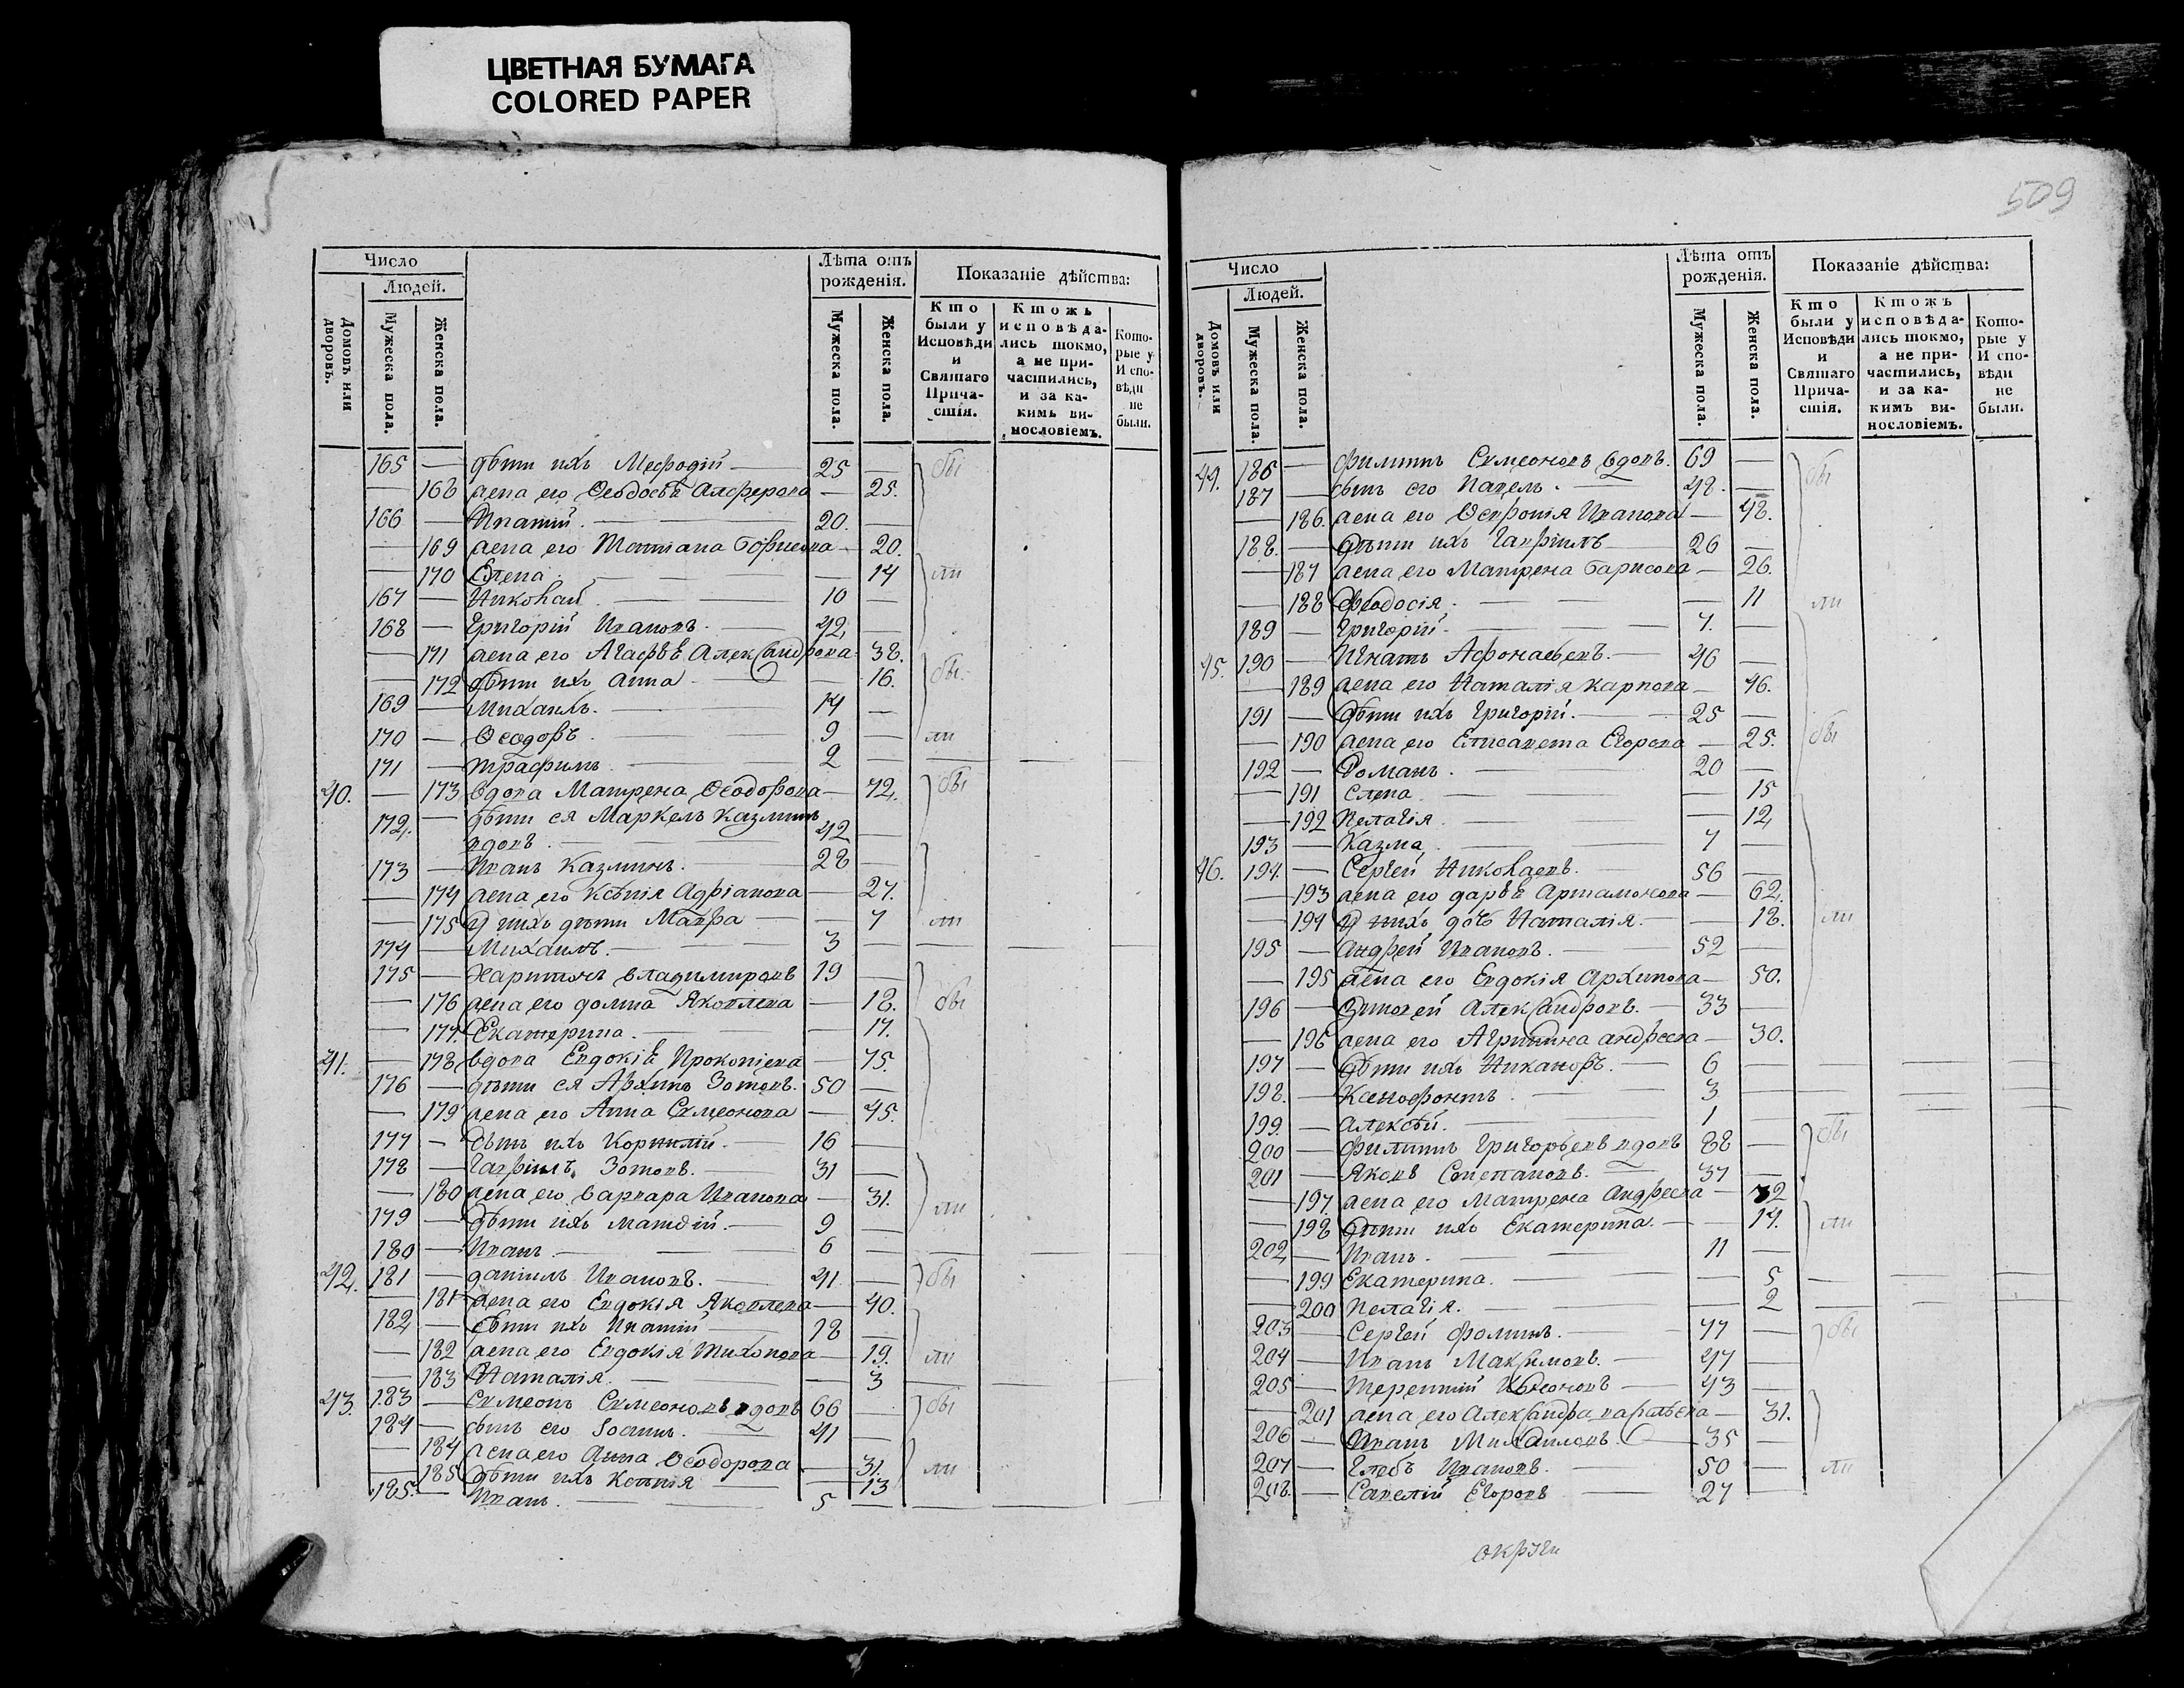 ЦВЕТНАЯ БУМАГА
COLORED PAPER
Число
Людей.
Домовъ или дворовъ.
Мужеска пола.
Женска пола.
Лѣта отъ рожденія.
Мужеска пола.
Женска пола.
Показаніе дѣйства:
Кто были у Исповѣди и Святаго Прича-стія.
Ктожъ исповѣда-лись токмо, а не при-частились, и за ка-кимъ ви-нословіемъ.
Кото-рые у Испо-вѣди не были.
165 — дѣти ихъ Мефодій — 25 — бы
— 168 жена его Ѳеодосья Алферова — 25.
166 — Ипатій. — 20. —
— 169 жена его Татіана Борисова — 20.
— 170 Елена — 14 ли
167 — Николай — 10 —
168 — Григорій Ивановъ. — 42, —
— 171 жена его Агафья Александрова — 38.
— 172 дѣти ихъ Анна — 16. бы
169 — Михаилъ. — 14 —
170 — Ѳеодоръ — 9 — ли
171 — Трафимъ — 2 —
40. — 173 вдова Матрена Ѳеодорова — 72, бы
172, — дѣти ея Маркелъ Казминъ
вдовъ. — 42 —
173 — Иванъ Казминъ. — 28 —
— 174 жена его Ксѣнія Адріанова — 27.
— 175 У нихъ дѣти Мавра — 7 ли
174 — Михаилъ. — 3 —
175 — Харитонъ Владимировъ 19 —
— 176 жена его домна Яковлева — 18. бы
— 177. Екатерина. — 17.
41. — 178 вдова Евдокія Прокопіева — 75.
176 — дѣти ея Архипъ Зотовъ. 50 —
— 179 жена его Анна Сѵмеонова — 45.
177 — сынъ ихъ Корнилій. — 16 —
178 — Гаврілъ Зотовъ. — 31 —
— 180 жена его Варвара Иванова — 31. ли
179 — дѣти ихъ Матѳій. — 9 —
180 — Иванъ — 6 —
42, 181 — даніилъ Ивановъ. — 41 — бы
— 181 жена его Евдокія Яковлева — 40.
182, — дѣти ихъ Ипатій — 18 —
— 182 жена его Евдокія Тихонова — 19. ли
— 183 Наталія. — 3
43. 183 — Сѵмеонъ Сѵмеоновъ вдовъ 66 — бы
184 — сынъ его Іоаннъ. — 41 —
— 184 жена его Анна Ѳеодорова — 31. ли
— 185 дѣти ихъ Ксѣнія — 13
185. — Иванъ. — 5 —
509
Число
Людей.
Домовъ или дворовъ.
Мужеска пола.
Женска пола.
Лѣта отъ рожденія.
Мужеска пола.
Женска пола.
Показаніе дѣйства:
Кто были у Исповѣди и Святаго Прича-стія.
Ктожъ исповѣда-лись токмо, а не при-частились, и за ка-кимъ ви-нословіемъ.
Кото-рые у Испо-вѣди не были.
44. 186 — филиппъ Сѵмеоновъ вдовъ. 69 — бы
187 — сынъ его Павелъ. — 48. —
— 186. жена его Иванова — 48.
188. — дѣти ихъ Гаврилъ — 26 —
— 187 жена его Матрена Барисова — 26.
— 188 Феодосія. — 11 ли
189 — Григорій — 7. —
45. 190 — Игнатъ Афонасьевъ. — 46 —
— 189 жена его Наталія Карпова — 46.
191 — дѣти ихъ Григорій. — 25 —
— 190 жена его Елисавета Егорова — 25. бы
192 — Романъ. — 20 —
— 191 Елена — 15
— 192 Пелагія — 12,
193 — Казма — 7 —
46. 194. — Сергей Николаевъ. — 56 —
— 193 жена его дарья Артамонова — 62,
— 194 У нихъ дочь Наталія. — 18. ли
195 — Андрей Ивановъ. — 52 —
— 195 жена его Евдокія Архипова — 50.
196 — Зиновей Александровъ. — 33 —
— 196 жена его Агрипина андреева — 30.
197 — дѣти ихъ Никаноръ. — 6 —
198. — Ксенофонтъ. — 3 —
199. — Алексѣй. — 1 —
200 — филиппъ Григорьевъ вдовъ 88 — бы
201 — Яковъ Степановъ. — 37 —
— 197. жена его Матрена Андреева — 32
— 198 дѣти ихъ Екатерина. — 14. ли
202, — Иванъ. — 11 —
— 199 Екатерина. — 5
— 200 Пелагія. — 2
203 — Сергей Фоминъ. — 77 — бы
204 — Иванъ Максимовъ. — 47 —
205 — Терентій — 43 —
— 201 жена его Александра — 31.
206 — Иванъ Михаиловъ. — 35 —
207 — Глебъ Ивановъ. — 50 — ли
208. — Савелій Егоровъ — 27 —